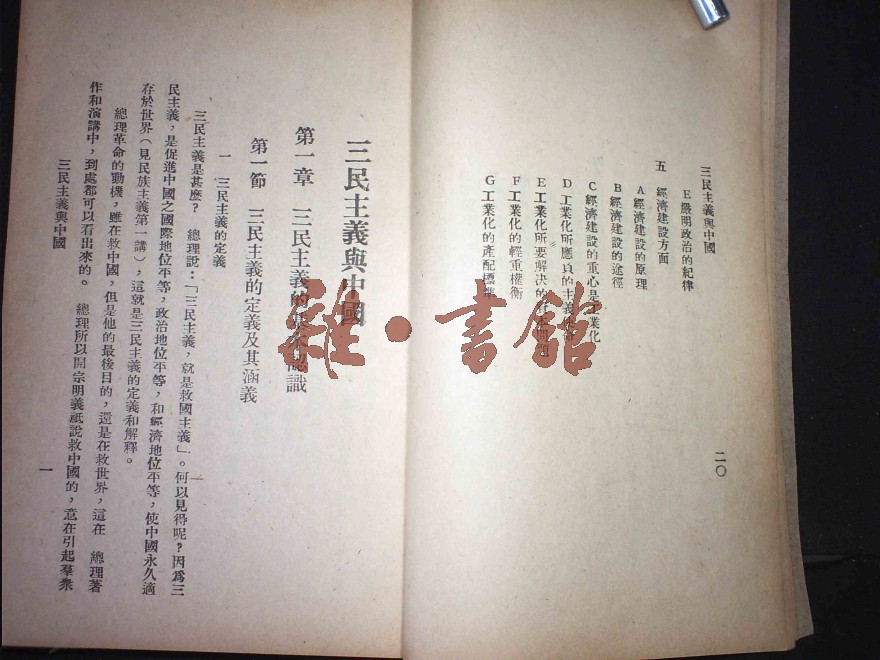 三民主義與中國
E 嚴明政治的紀律
五 經濟建設方面
A 經濟建設的原理
B 經濟建設的途徑
C 經濟建設的重心是工業化
D 工業化所應負的主義
E 工業化所要解決的
F 工業化的輕重權衡
G 工業化的產配標準
二〇
三民主義與中國
第一章 三民主義的基本認識
第一節 三民主義的定義及其涵義
一 三民主義的定義
三民主義是甚麼? 總理說:「三民主義,就是救國主義」。何以見得呢?因爲三
民主義,是促進中國之國際地位平等,政治地位平等,和經濟地位平等,使中國永久適
存於世界(見民族主義第一講),這就是三民主義的定義和解釋。
總理革命的動機,雖在救中國,但是他的最後目的,還是在救世界,這在 總理著
作和演講中,到處都可以看出來的。 總理所以開宗明義祗說救中國的,意在引起羣衆
三民主義與中國
一
雜·書館